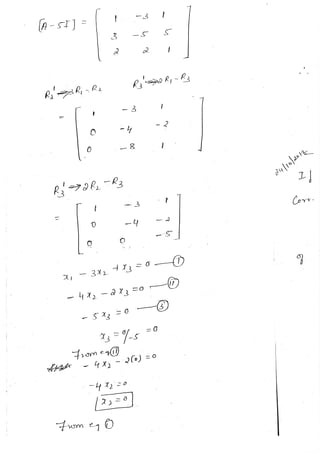 [A - 5I] =
1 -3 1
3 -5 5
2 2 1
R₂' → 3R₁ - R₂ R₃' → 2R₁ - R₃
=
1 -3 1
0 -4 -2
0 -8 1
R₃' → 2R₂ - R₃
=
1 -3 1
0 -4 -2
0 0 -5
x₁ - 3x₂ + x₃ = 0 — (I)
-4x₂ - 2x₃ = 0 — (II)
-5x₃ = 0 — (3)
x₃ = 0/-5 = 0
From eq (II)
-4x₂ - 2(0) = 0
-4x₂ = 0
x₂ = 0
From eq (I)